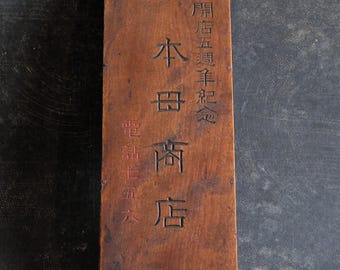 開店五週年紀念
本田商店
電話七五六